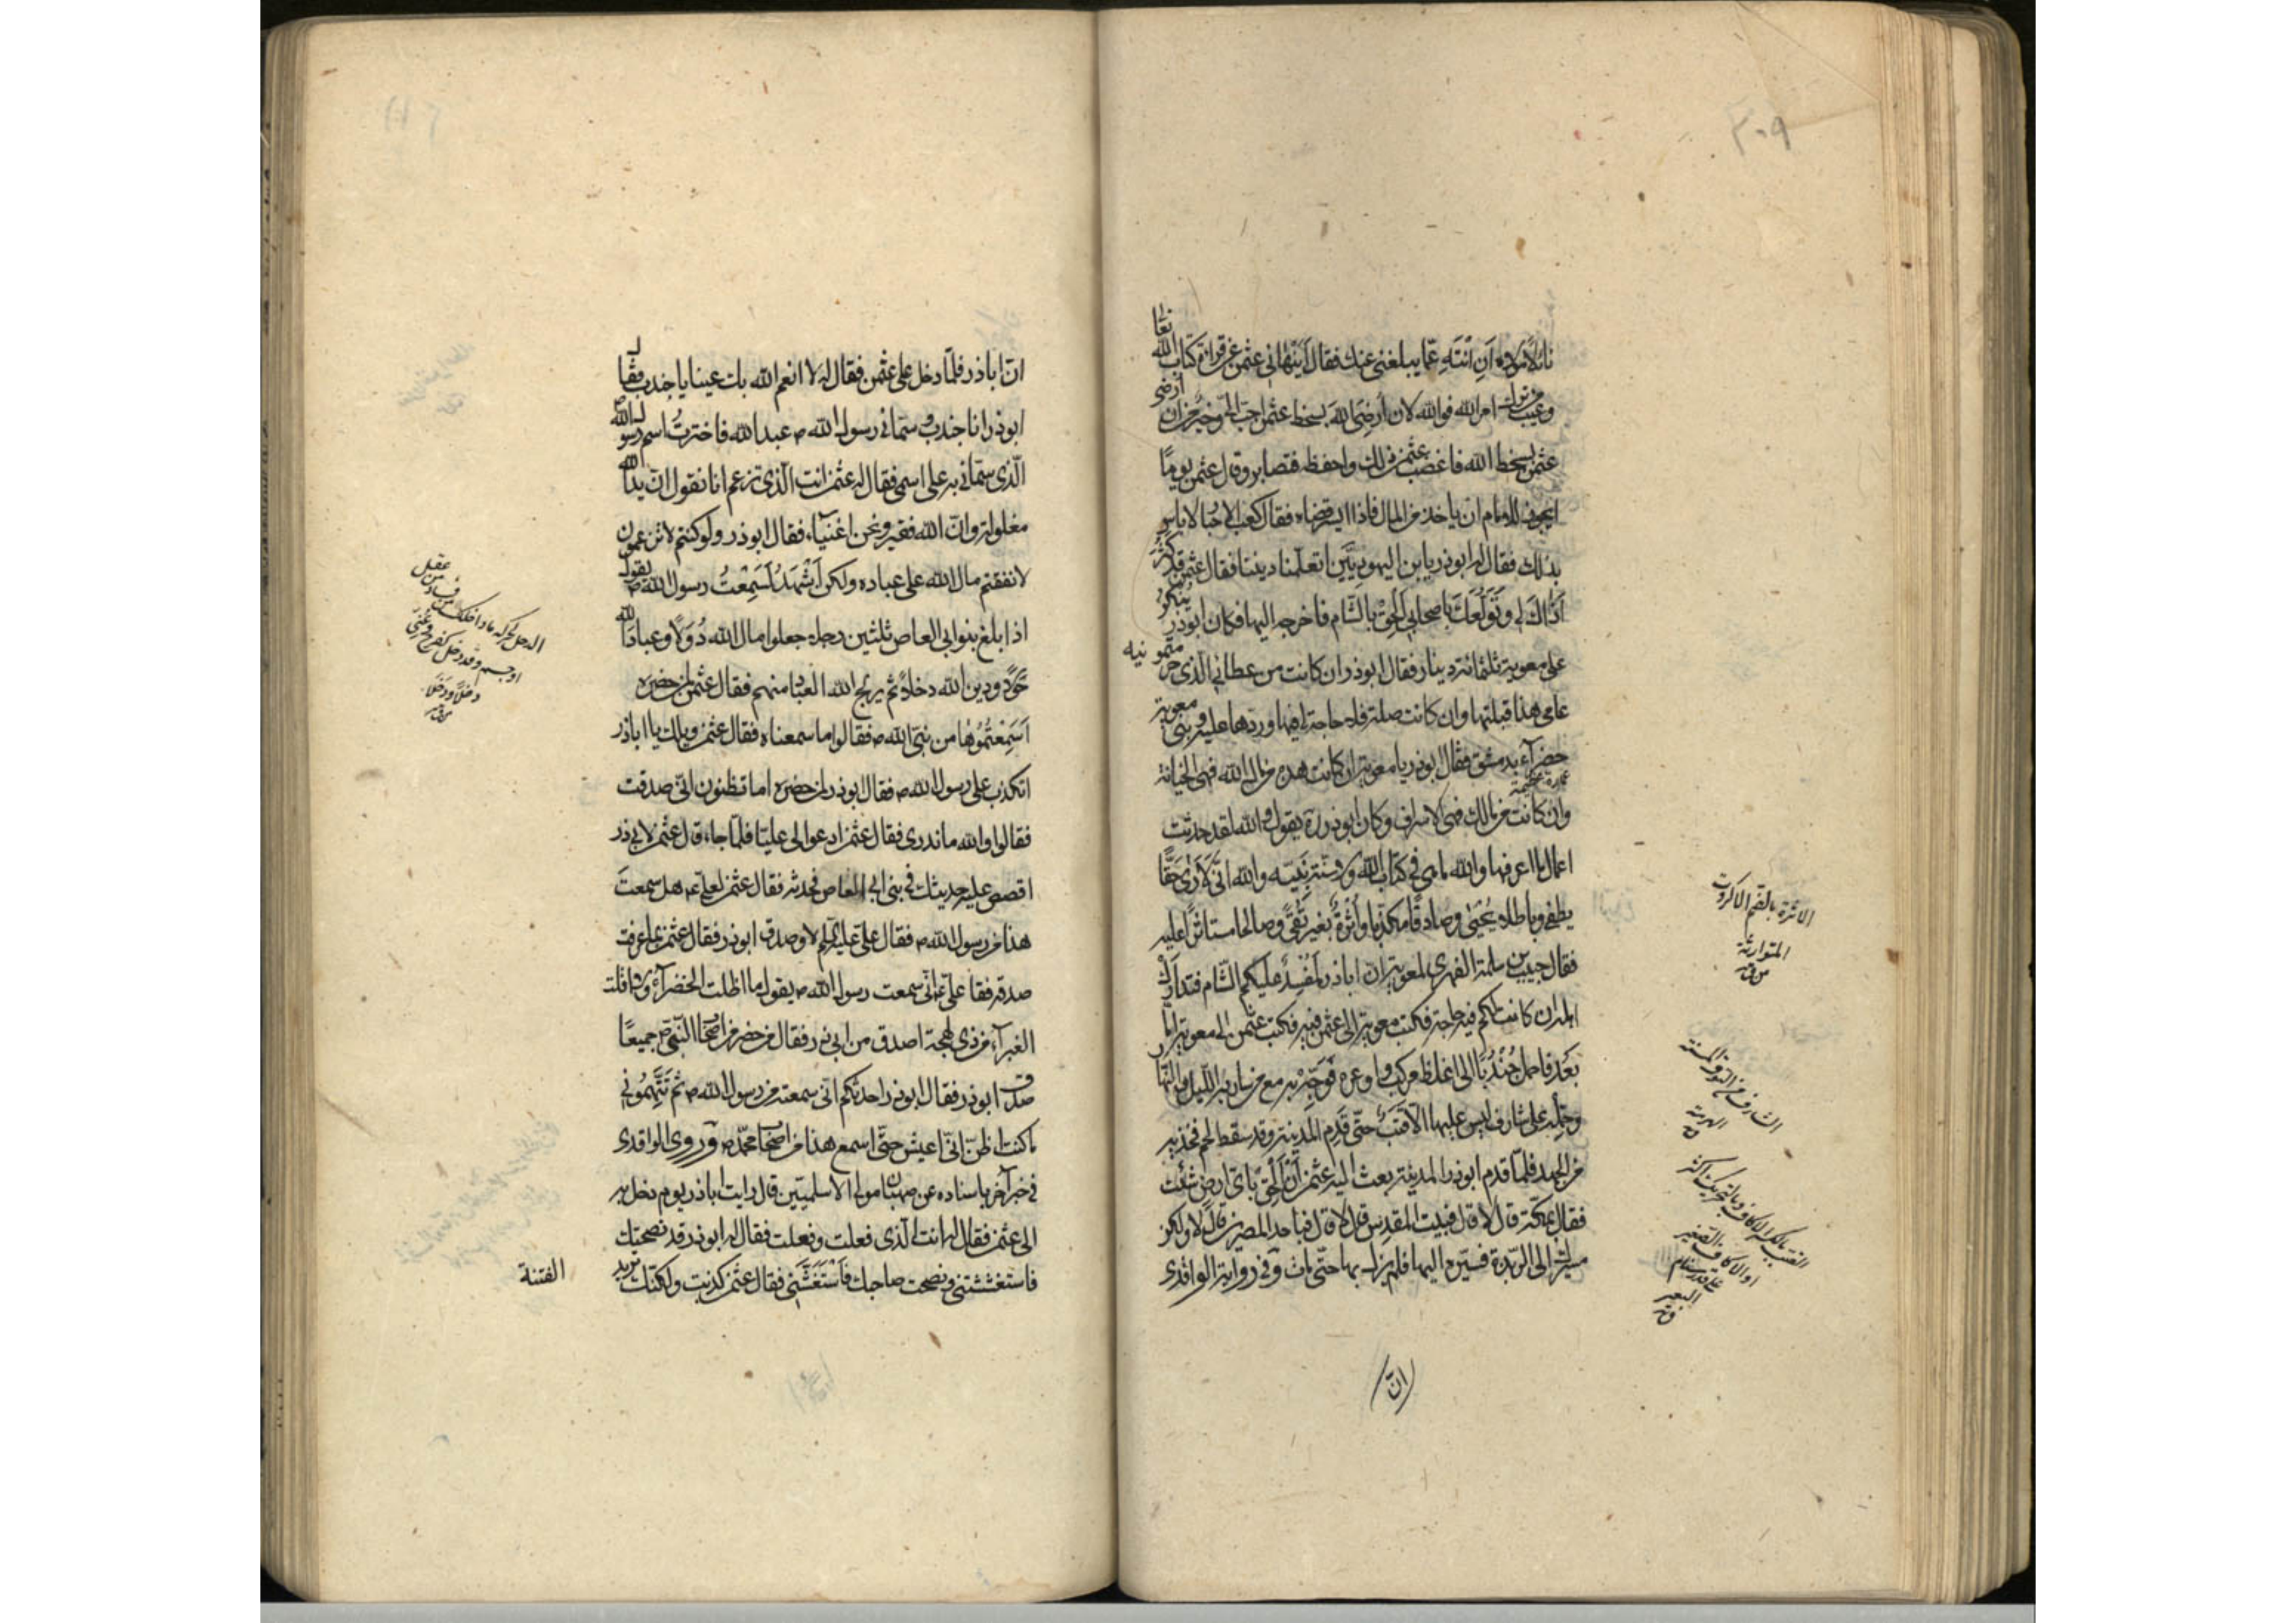 ٣٠٩
نائلا مولاه أَنِ انْتَهِ عمّا يبلغني عنك فقال أَيَنْهاني عثمن عن قراءة كتاب الله تعا
وعيب من ترك امر الله فوالله لان أُرضِىَ اللهَ بسخط عثمن احبّ الىّ وخير من ان ارضى
عثمن بسخط الله فاغضب عثمن ذلك واحفظه فتصابر وقال عثمن يومًا
ايجوز للامام ان ياخذ من المال فاذا ايسر قضاه فقال كعب الاحبار لا باس
بذلك فقال له ابوذر يابن اليهوديَّين اتعلّمنا ديننا فقال عثمن قد كثر
اَذَاكَ لى وتَوَلُّعكَ باصحابى اَلْحِقْ بالشّام فاخرجه اليها فكان ابوذر ينكر
على معوية ثلثمائة دينار فقال ابوذر ان كانت من عطائى الّذى حرمتمونيه
عامى هذا قبلتها وان كانت صلة فلا حاجة لى فيها وردّها عليه وبنى معوية
خضرآء بدمشق فقال ابوذر يا معوية ان كانت هذه من مال الله فهى الخيانة
وان كانت من مالك فهى الاسراف وكان ابوذر ره يقول والله لقد حدثت
اعمال ما اعرفها والله ما هى فى كتاب الله ولا سنّة نبيّه والله انّى لَاَرى حَقًّا
يطفى وباطلا يُحْيَى وصادقًا مكذّبا وأُثْرةً بغير تُقىً وصالحا مستاثرًا عليه
فقال حبيب بن سلمة الفهرى لمعوية ان اباذر لَمُفْسِدٌ عليكم الشّام فتدارَكْ
اهله ان كانت لكم فيه حاجة فكتب معوية الى عثمن فيه فكتب عثمن الى معوية امّا
بَعْدُ فاحمل جُنْدُبًا الىّ اغلظ مركب واوعره فَوَجِّهْ به مع من سار به الليل والنّهار
وحَمَله على شارف ليس عليها الّا قَتَبٌ حتّى قَدِم المدينة وقد سقط لحم فخذيه
من الجهد فلمّا قدم ابوذر المدينة بعث اليه عثمن أَنْ اِلْحَقْ باىّ ارض شئت
فقال بمكّة قال لا قال فببيت المقدِس قال لا قال فباحد المصرين قال لا ولكن
مسيّرك الى الرّبذة فسيّره اليها فلم يزل بها حتّى مات وَفى رواية الواقدى
الاثرة بالضم المكرمة
المتوارثة
الشارف من النوق المسنة
الهرمة
ق
او الاكاف الصغير
على قدر سنام
البعير
ق
انّ
انّ اباذر فلمّا دخل على عثمن فقال له لا انعم الله بك عينا يا جندب فقال
ابوذر انا جندب وسمّانى رسول الله ص عبدالله فاخترتُ اسم رسول الله
الّذى سمّانى به على اسمى فقال له عثمن انت الّذى تزعم انا نقول انّ يدالله
مغلولة وانّ الله فقير ونحن اغنيآء فقال ابوذر ولو كنتم لا تزعمون
لانفقتم مال الله على عباده ولكن اَشْهَدُ لَسَمِعْتُ رسول الله ص يقول
اذا بلغ بنو ابى العاص ثلثين رجلا جعلوا مال الله دُوَلًا وعبادَ الله
خَوَلًا ودين الله دخلاً ثم يريح الله العباد منهم فقال عثمن لمن حضره
اَسَمِعْتُمُوها من نبىّ الله ص فقالوا ما سمعناه فقال عثمن ويلك يا اباذر
اتكذب على رسول الله ص فقال ابوذر لمن حضره اما تظنون انّى صدقت
فقالوا والله ما ندرى فقال عثمن ادعوا لى عليّا فلمّا جاء قال عثمن لابى ذر
اقصص عليه حديثك فى بنى ابى العاص فحدثه فقال عثمن لعلىّ ع هل سمعتَ
هذا من رسول الله ص فقال علىّ عليه السلم لا وصدق ابوذر فقال عثمن بما عرفت
صدقه فقا علىّ ع انّى سمعت رسول الله ص يقول ما اظلت الخضرآء ولا اقلت
الغبرآء من ذى لهجة اصدق من ابى ذر فقال من حضر من اصحاب النّبىّ ص جميعًا
صدق ابوذر فقال ابوذر احدثكم انّى سمعته من رسول الله ص ثم تَتَّهِمُونى
ما كنت اظنّ انّى اعيش حتّى اسمع هذا من اصحاب محمّد ص وَروى الواقدى
فى خبر آخر باسناده عن صهبان مولى الاسلميّين قال رايت اباذر يوم دخل به
الى عثمن فقال له انت الّذى فعلت وفعلت فقال له ابوذر قد نصحتك
فاستغششتنى ونصحت صاحبك فاسْتَغَشَّنى فقال عثمن كذبت ولكنّك تريد
الفتنة